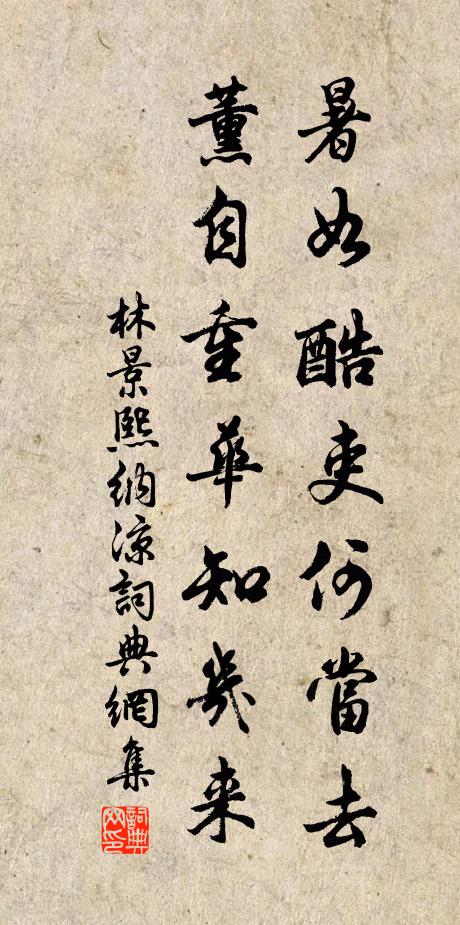 暑如酷吏何當去
薰自重華知幾来
林景熙納涼詞典網集
詞典網印